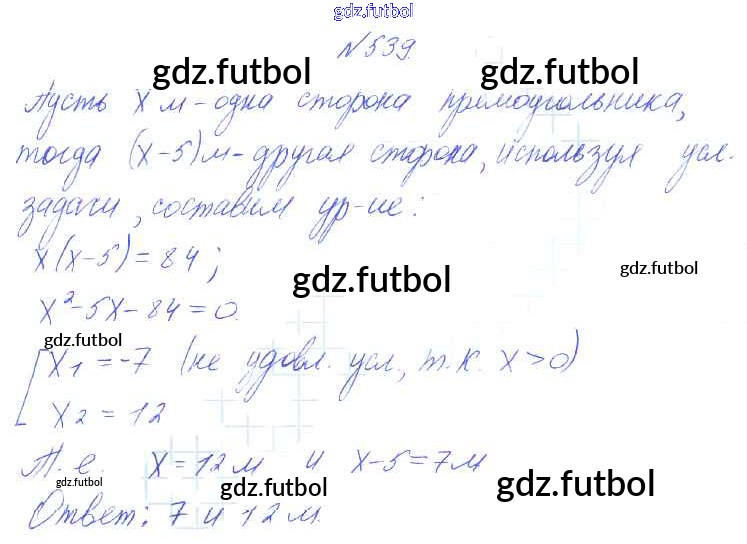 gdz.futbol
№539.
gdz.futbol gdz.futbol
Пусть x м - одна сторона прямоугольника,
тогда (x-5) м - другая сторона, используя усл.
задачи, составим ур-ие:
x(x-5)=84;
gdz.futbol gdz.futbol
x²-5x-84=0.
gdz.futbol
x₁=-7 (не удовл. усл., т.к. x>0)
x₂=12
Т.е. x=12м и x-5=7м
gdz.futbol gdz.futbol gdz.futbol
Ответ: 7 и 12 м.